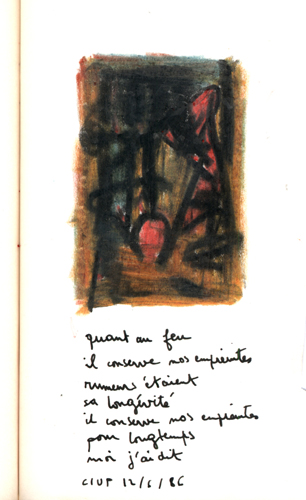 quant au feu
il conserve nos empreintes
rumeurs étaient
sa longévité
il conserve nos empreintes
pour longtemps
moi j'ai dit
CIUP 12/6/86